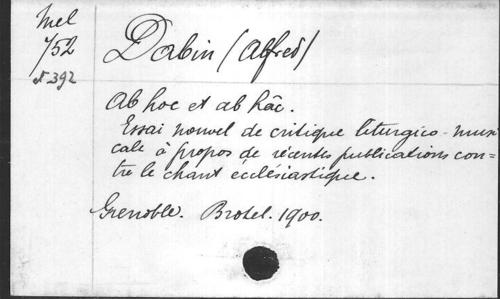 Mel
752
N. 392
Dabin (Alfred)
Ab hoc et ab hâc.
Essai nouvel de critique liturgico-musi
cale à propos de récentes publications con-
tre le chant ecclésiastique.
Grenoble. Brotel. 1900.